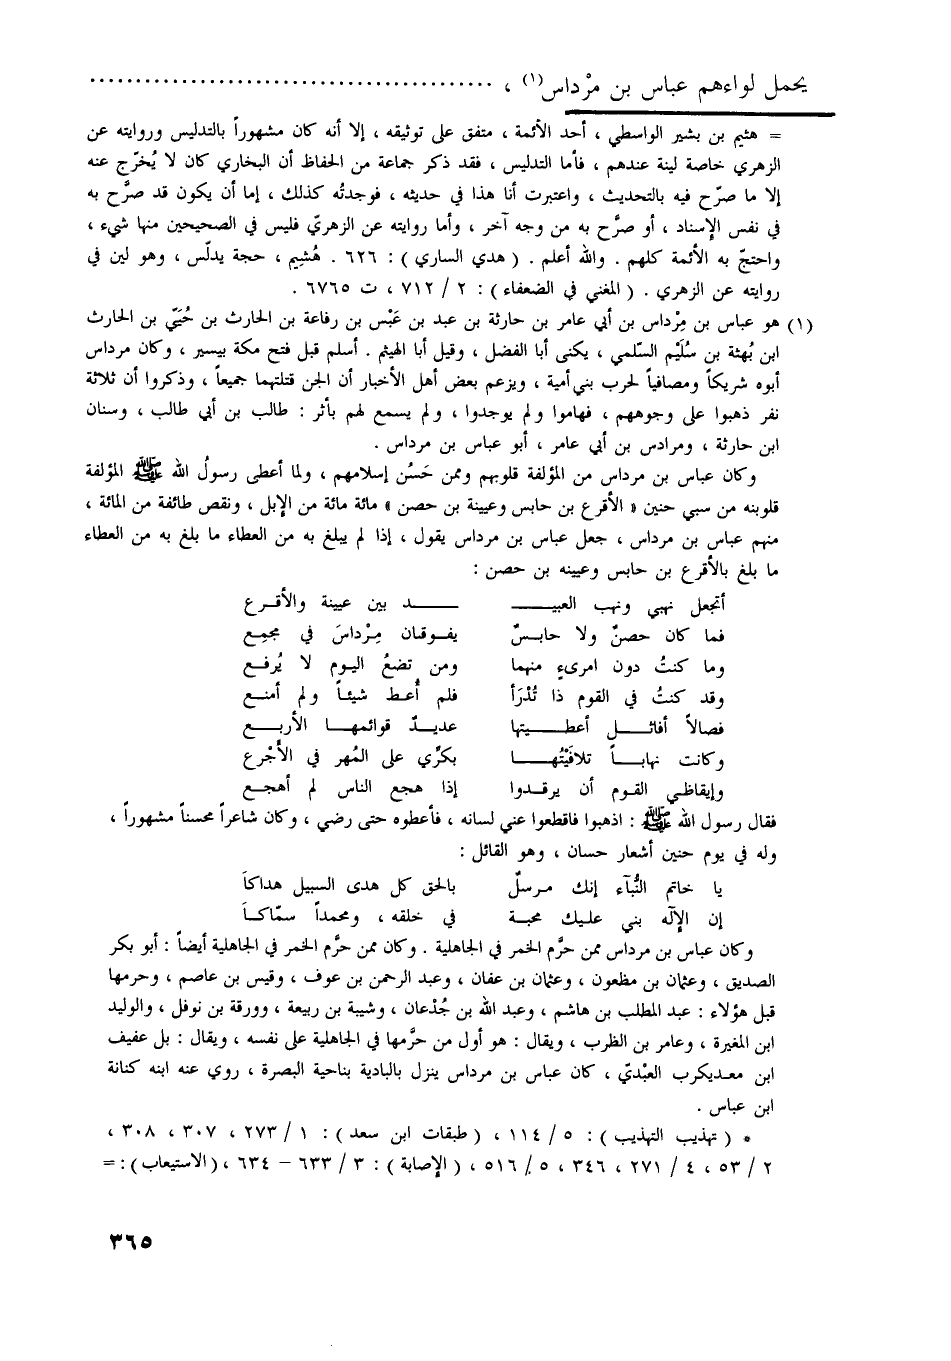 يحمل لواءهم عباس بن مرْداس(١) ، ............................................
= هثيم بن بشير الواسطي ، أحد الأئمة ، متفق على توثيقه ، إلا أنه كان مشهوراً بالتدليس وروايته عن
الزهري خاصة لينة عندهم ، فأما التدليس ، فقد ذكر جماعة من الحفاظ أن البخاري كان لا يُخرّج عنه
إلا ما صرّح فيه بالتحديث ، واعتبرت أنا هذا في حديثه ، فوجدتُه كذلك ، إما أن يكون قد صرَّح به
في نفس الإسناد ، أو صرَّح به من وجه آخر ، وأما روايته عن الزهريّ فليس في الصحيحين منها شيء ،
واحتجّ به الأئمة كلهم . والله أعلم . ( هدي الساري ) : ٦٢٦ . هُشيم ، حجة يدلّس ، وهو لين في
روايته عن الزهري . ( المغني في الضعفاء ) : ٢ / ٧١٢ ، ت ٦٧٦٥ .
(١) هو عباس بن مِرْداس بن أبي عامر بن حارثة بن عبد بن عَبْس بن رفاعة بن الحارث بن حُيَيّ بن الحارث
ابن بُهثة بن سُلَيْم السّلمي ، يكنى أبا الفضل ، وقيل أبا الهيثم . أسلم قبل فتح مكة بيسير ، وكان مرداس
أبوه شريكاً ومصافياً لحرب بني أمية ، ويزعم بعض أهل الأخبار أن الجن قتلتهما جميعاً ، وذكروا أن ثلاثة
نفر ذهبوا على وجوههم ، فهاموا ولم يوجدوا ، ولم يسمع لهم بأثر : طالب بن أبي طالب ، وسنان
ابن حارثة ، ومرادس بن أبي عامر ، أبو عباس بن مرداس .
وكان عباس بن مرداس من المؤلفة قلوبهم وممن حَسُن إسلامهم ، ولما أعطى رسولُ الله ﷺ المؤلفة
قلوبنه من سبي حنين « الأقرع بن حابس وعيينة بن حصن » مائة مائة من الإبل ، ونقص طائفة من المائة ،
منهم عباس بن مرداس ، جعل عباس بن مرداس يقول ، إذا لم يبلغ به من العطاء ما بلغ به من العطاء
ما بلغ بالأقرع بن حابس وعيينه بن حصن :
أتجعل نهبي ونهب العبيـــــــــ ـــــــــد بين عيينة والأقـرع
فما كان حصنٌ ولا حابـسٌ يفـوقـان مِـرْداسَ في مجمِـع
وما كنتُ دون امرىءٍ منهما ومن تضعُ اليـوم لا يُرفـع
وقد كنتُ في القوم ذا تُدْرَأ فلم أُعـط شيئـاً ولم أمنـع
فصالاً أفائـــل أعطـــيتها عديـدٌ قوائمهـا الأربـع
وكانت نهابـــاً تلافَيْتُهـــا بكرِّي على المُهر في الأَجْرع
وإيقاظـي القـوم أن يرقـدوا إذا هجع الناس لم أهجـع
فقال رسول الله ﷺ : اذهبوا فاقطعوا عني لسانه ، فأعطوه حتى رضي ، وكان شاعراً محسناً مشهوراً ،
وله في يوم حنين أشعار حسان ، وهو القائل :
يا خاتم النُّبآء إنك مـرسلٌ بالحق كل هدى السبيل هداكا
إن الإلّه بني عليـك محبـة في خلقه ، ومحمداً سمّاكـا
وكان عباس بن مرداس ممن حرَّم الخمر في الجاهلية . وكان ممن حرَّم الخمر في الجاهلية أيضاً : أبو بكر
الصديق ، وعثمان بن مظعون ، وعثمان بن عفان ، وعبد الرحمن بن عوف ، وقيس بن عاصم ، وحرمها
قبل هؤلاء : عبد المطلب بن هاشم ، وعبد الله بن جُدْعان ، وشيبة بن ربيعة ، وورقة بن نوفل ، والوليد
ابن المغيرة ، وعامر بن الظرب ، ويقال : هو أول من حرَّمها في الجاهلية على نفسه ، ويقال : بل عفيف
ابن معديكرب العبْديّ ، كان عباس بن مرداس ينزل بالبادية بناحية البصرة ، روي عنه ابنه كنانة
ابن عباس .
* ( تهذيب التهذيب ) : ٥ / ١١٤ ، ( طبقات ابن سعد ) : ١ / ٢٧٣ ، ٣٠٧ ، ٣٠٨ ،
٢ / ٥٣ ، ٤ / ٢٧١ ، ٣٤٦ ، ٥ / ٥١٦ ، ( الإصابة ) : ٣ / ٦٣٣ – ٦٣٤ ، ( الاستيعاب ) : =
٣٦٥